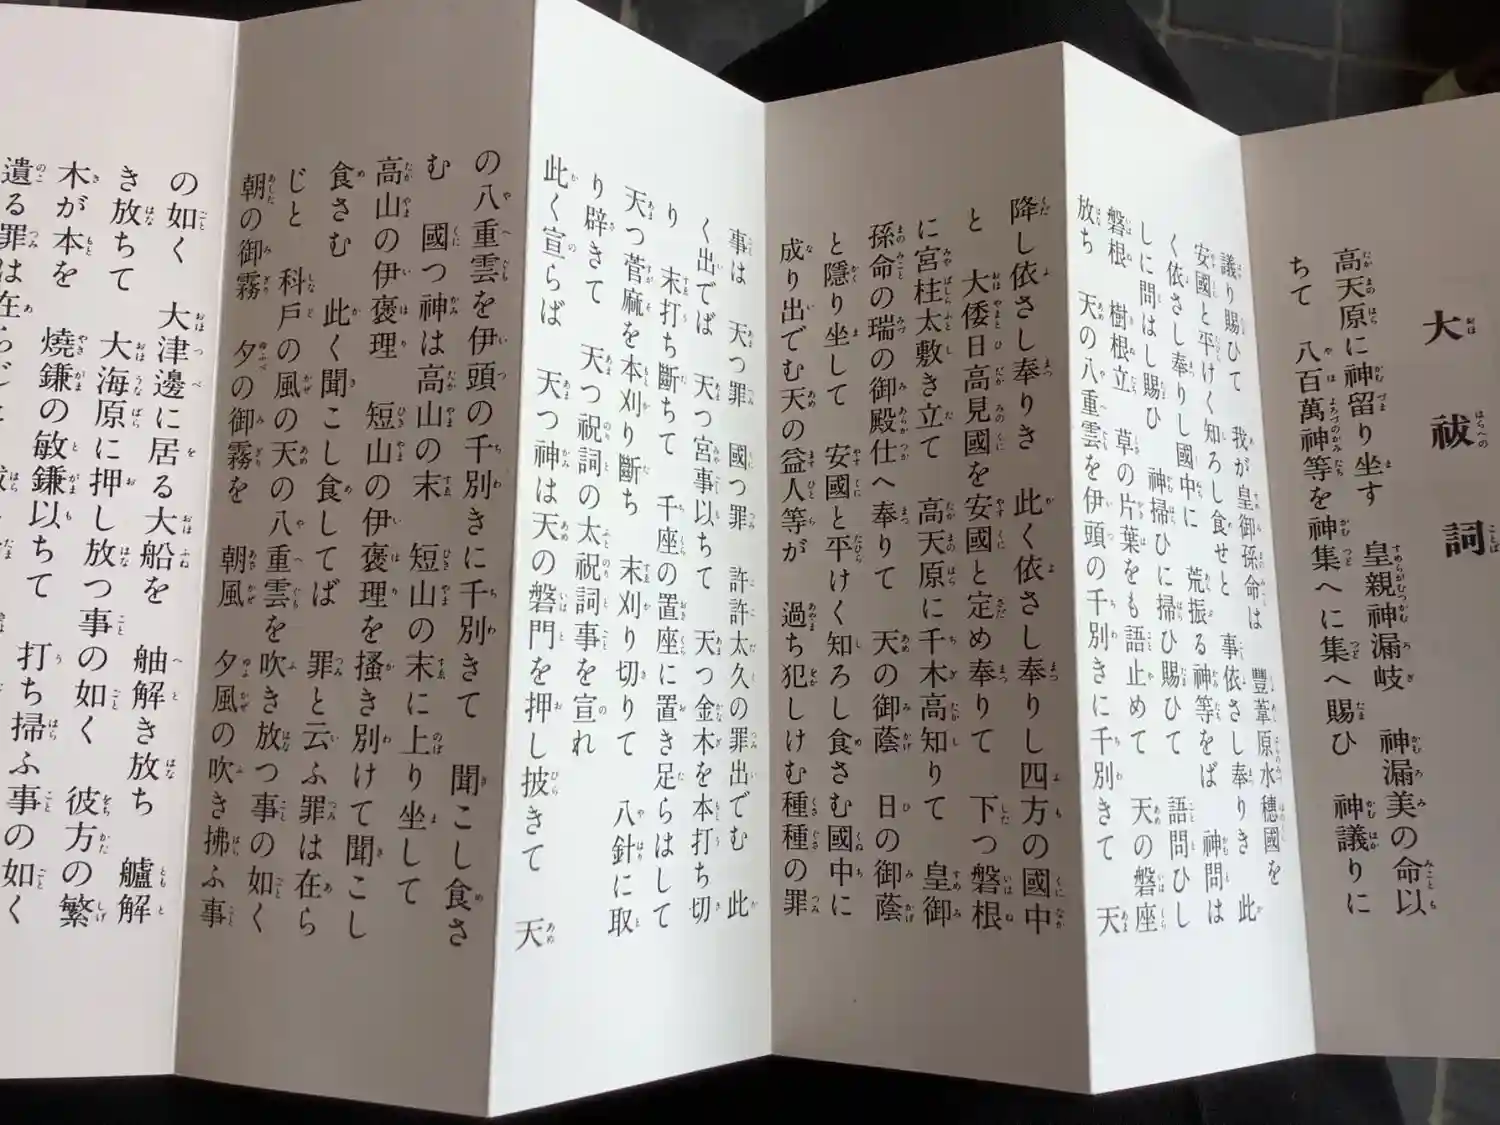 大祓詞
高天原に神留り坐す 皇親神漏岐 神漏美の命以
ちて 八百萬神等を神集へに集へ賜ひ 神議りに
議り賜ひて 我が皇御孫命は 豐葦原水穗國を
安國と平けく知ろし食せと 事依さし奉りき 此
く依さし奉りし國中に 荒振る神等をば 神問は
しに問はし賜ひ 神掃ひに掃ひ賜ひて 語問ひし
磐根 樹根立 草の片葉をも語止めて 天の磐座
放ち 天の八重雲を伊頭の千別きに千別きて 天
降し依さし奉りき 此く依さし奉りし四方の國中
と 大倭日高見國を安國と定め奉りて 下つ磐根
に宮柱太敷き立て 高天原に千木高知りて 皇御
孫命の瑞の御殿仕へ奉りて 天の御蔭 日の御蔭
と隱り坐して 安國と平けく知ろし食さむ國中に
成り出でむ天の益人等が 過ち犯しけむ種種の罪
事は 天つ罪 國つ罪 許許太久の罪出でむ 此
く出でば 天つ宮事以ちて 天つ金木を本打ち切
り 末打ち斷ちて 千座の置座に置き足らはして
天つ菅麻を本刈り斷ち 末刈り切りて 八針に取
り辟きて 天つ祝詞の太祝詞事を宣れ
此く宣らば 天つ神は天の磐門を押し披きて 天
の八重雲を伊頭の千別きに千別きて 聞こし食さ
む 國つ神は高山の末 短山の末に上り坐して
高山の伊褒理 短山の伊褒理を搔き別けて聞こし
食さむ 此く聞こし食してば 罪と云ふ罪は在ら
じと 科戶の風の天の八重雲を吹き放つ事の如く
朝の御霧 夕の御霧を 朝風 夕風の吹き拂ふ事
の如く 大津邊に居る大船を 舳解き放ち 艫解
き放ちて 大海原に押し放つ事の如く 彼方の繁
木が本を 燒鎌の敏鎌以ちて 打ち掃ふ事の如く
遺る罪は在らじと